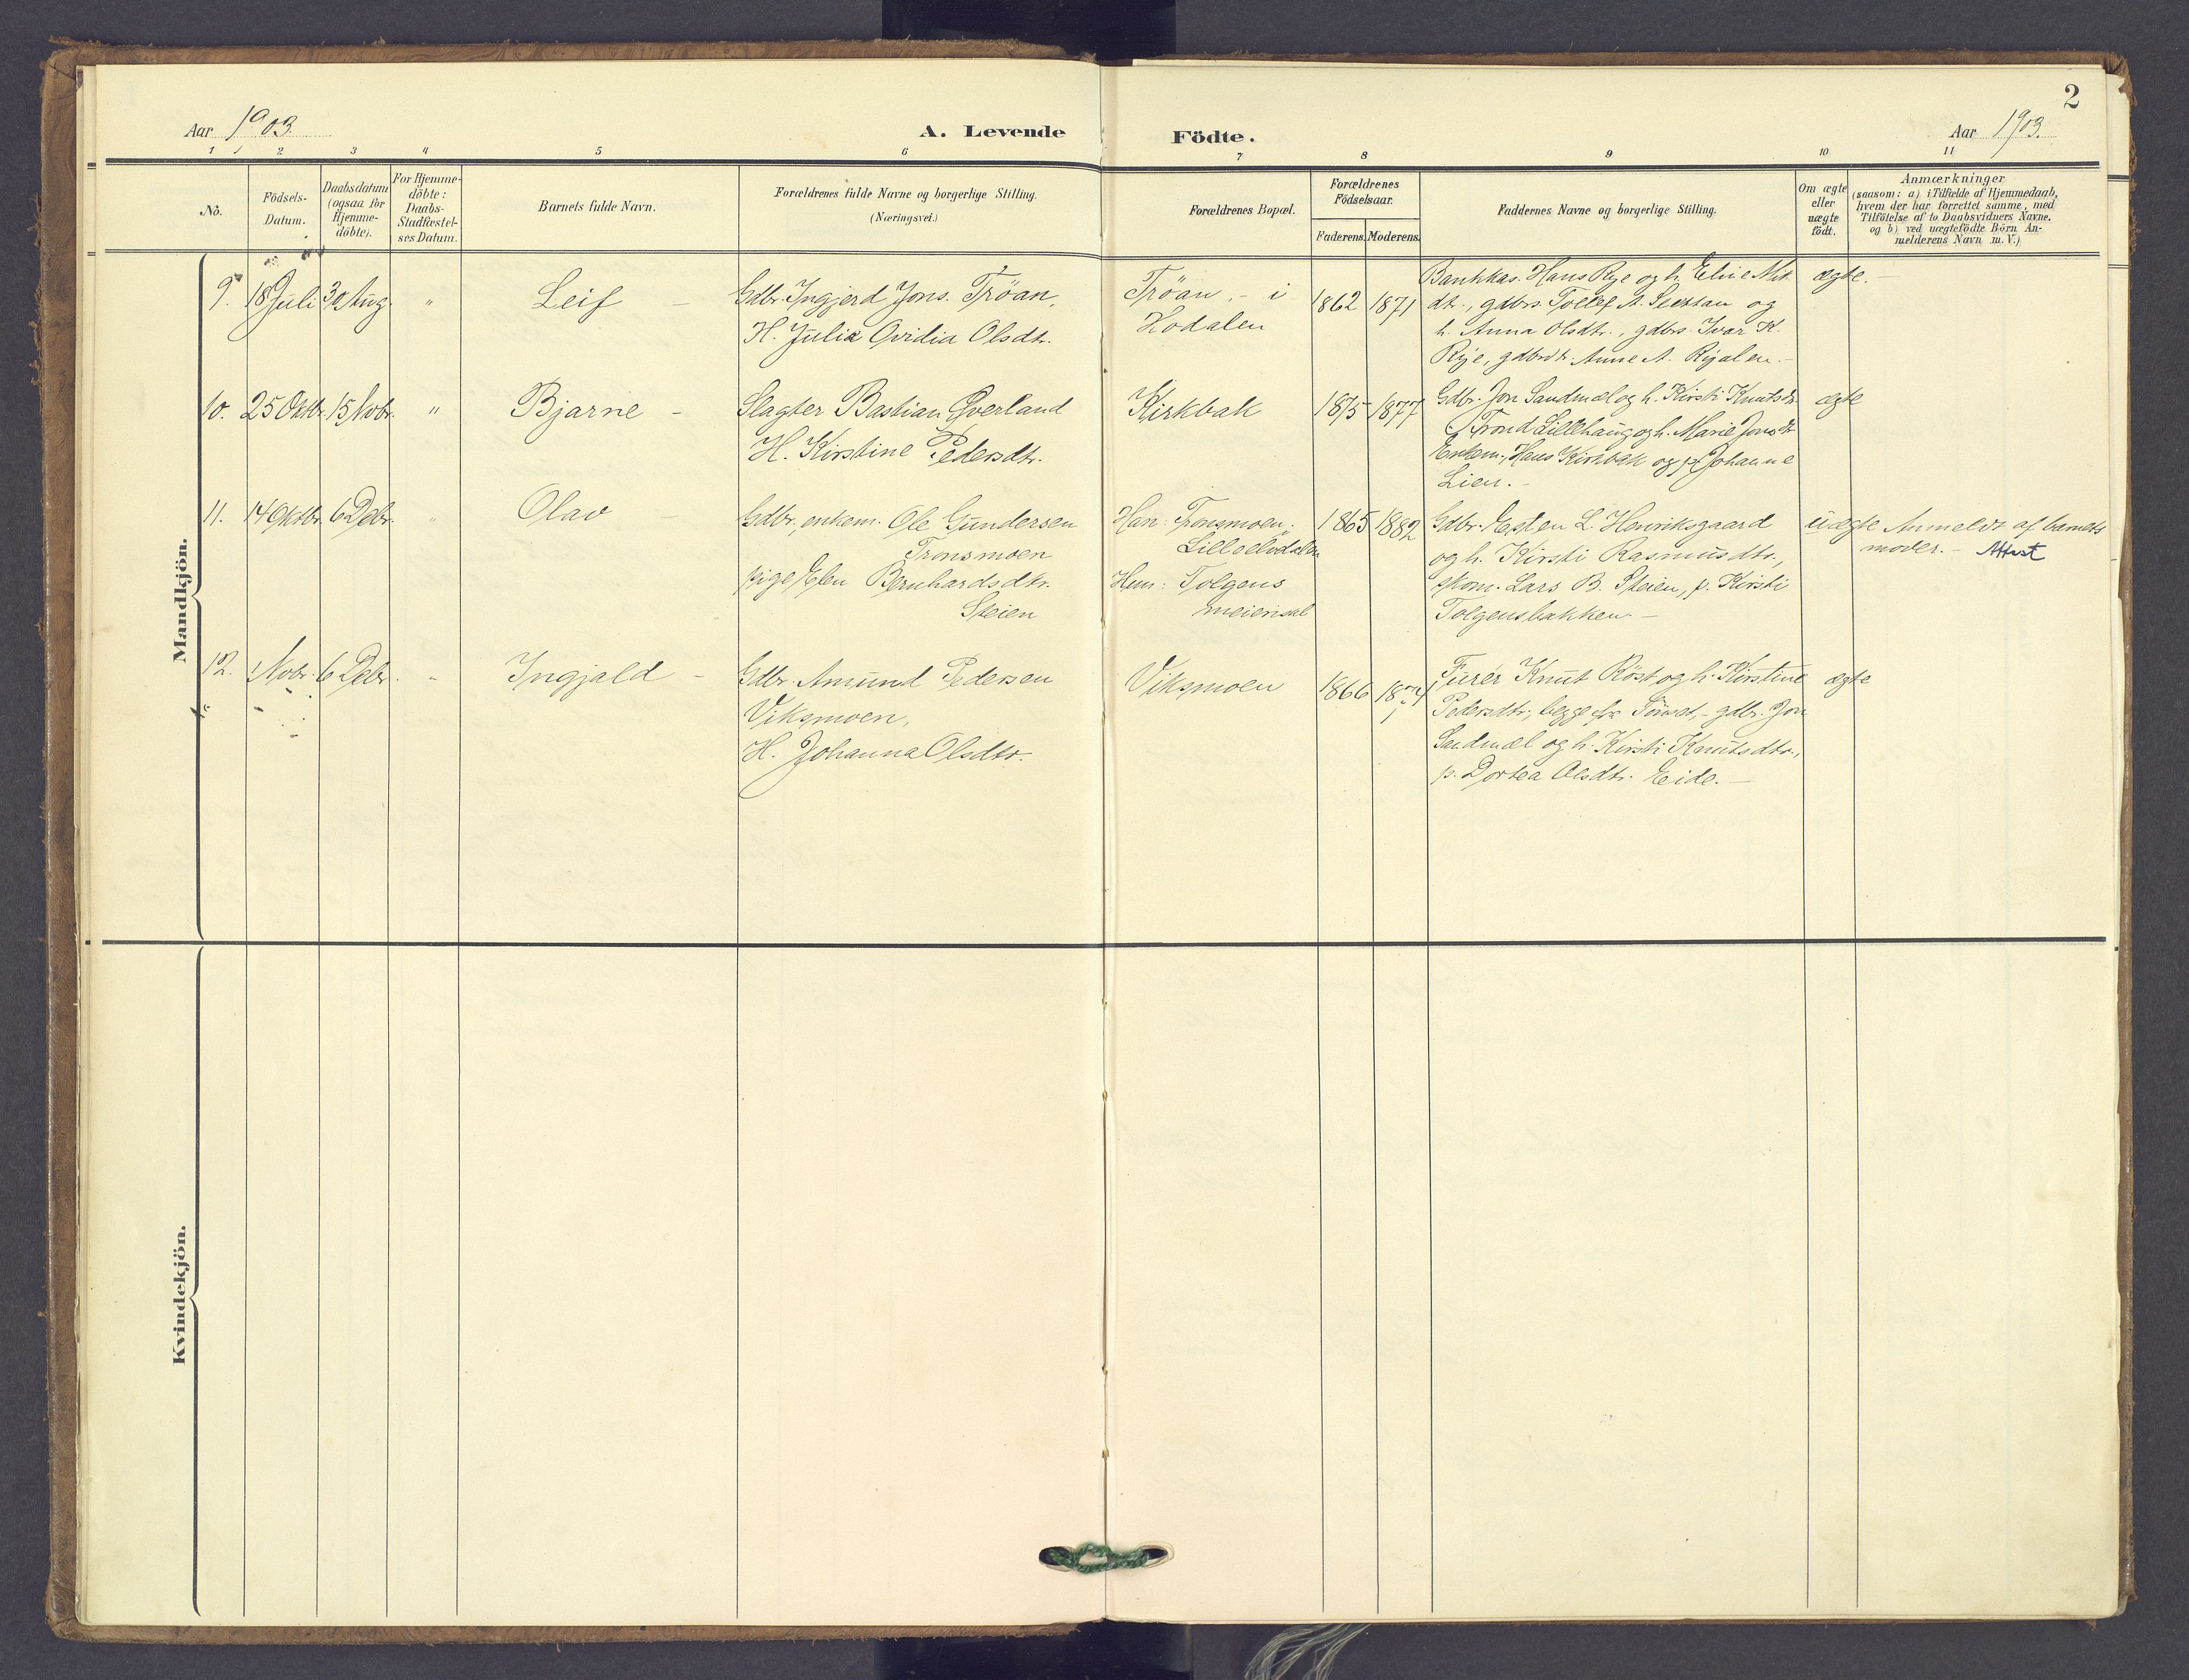 2
Aar 1903.
A. Levende
Födte.
Aar 1903.
1 2 3 4 5 6 7 8 9 10 11
No.
Födsels-
Datum.
Daabsdatum
(ogsaa för
Hjemme-
döbte).
For Hjemme-
döbte:
Daabs-
Stadfæstel-
ses Datum.
Barnets fulde Navn.
Forældrenes fulde Navne og borgerlige Stilling.
(Næringsvei.)
Forældrenes Bopæl.
Forældrenes
Födselsaar.
Faderens. Moderens.
Faddernes Navne og borgerlige Stilling.
Om ægte
eller
uægte
födt.
Anmærkninger
(saasom: a) i Tilfælde af Hjemmedaab,
hvem der har forrettet samme, med
Tilföielse af to Daabsvidners Navne,
og b) ved uægtefödte Börn An-
melderens Navn m. V.)
Mandkjön.
9. 18 Juli 30 Aug. " Leif -
Gdbr. Ingjerd Jons. Tröan,
H. Julia Ovidia Olsdtr.
Tröan, - i
Hodalen
1862 1871
Bankkas. Hans Rye og h. Eline
dtr., gdbrs. Tollef A. og
h. Anna Olsdtr., gdbrs. Ivar K.
Rye, gdbrdtr. Anne A. Ryalen. -
ægte. -
10. 25 Oktbr. 15 Nobr. " Bjarne -
Slagter Bastian Øverland
H. Kirstine Pedersdtr.
Kirkbak
1875 1877
Gdbr. Jon Sandmæl og h. Kirsti Knutsdtr.
Trond Lillehaug og h. Marie Jonsdtr
Enkem. Hans Kirkbak og p. Johanne
Lien. -
ægte
11. 14 Oktbr. 6 Debr. " Olav -
Gdbr, enkem. Ole Gundersen
Tronsmoen
pige Elen Bernhardsdtr.
Steien
Han: Tronsmoen,
Lilleelvdalen
Hun: Tolgens
meierisal
1865 1882
Gdbr. Esten L. Henriksgaard
og h. Kirsti Rasmusdtr,
skom. Lars B. Steien, p. Kirsti
Tolgensbakken. -
uægte
Anmeldt af barnets
moder. - Attest
12. Nobr. 6 Debr. " Ingjald -
Gdbr. Amund Pedersen
Viksmoen,
H. Johanna Olsdtr.
Viksmoen
1866 1871
Furér Knut Röst og h. Kirstine
Pedersdtr, begge fra Tönset, - gdbr. Jon
Sandmæl og h. Kirsti Knutsdtr.,
p. Dortea Olsdtr. Eide. -
ægte
Kvindekjön.